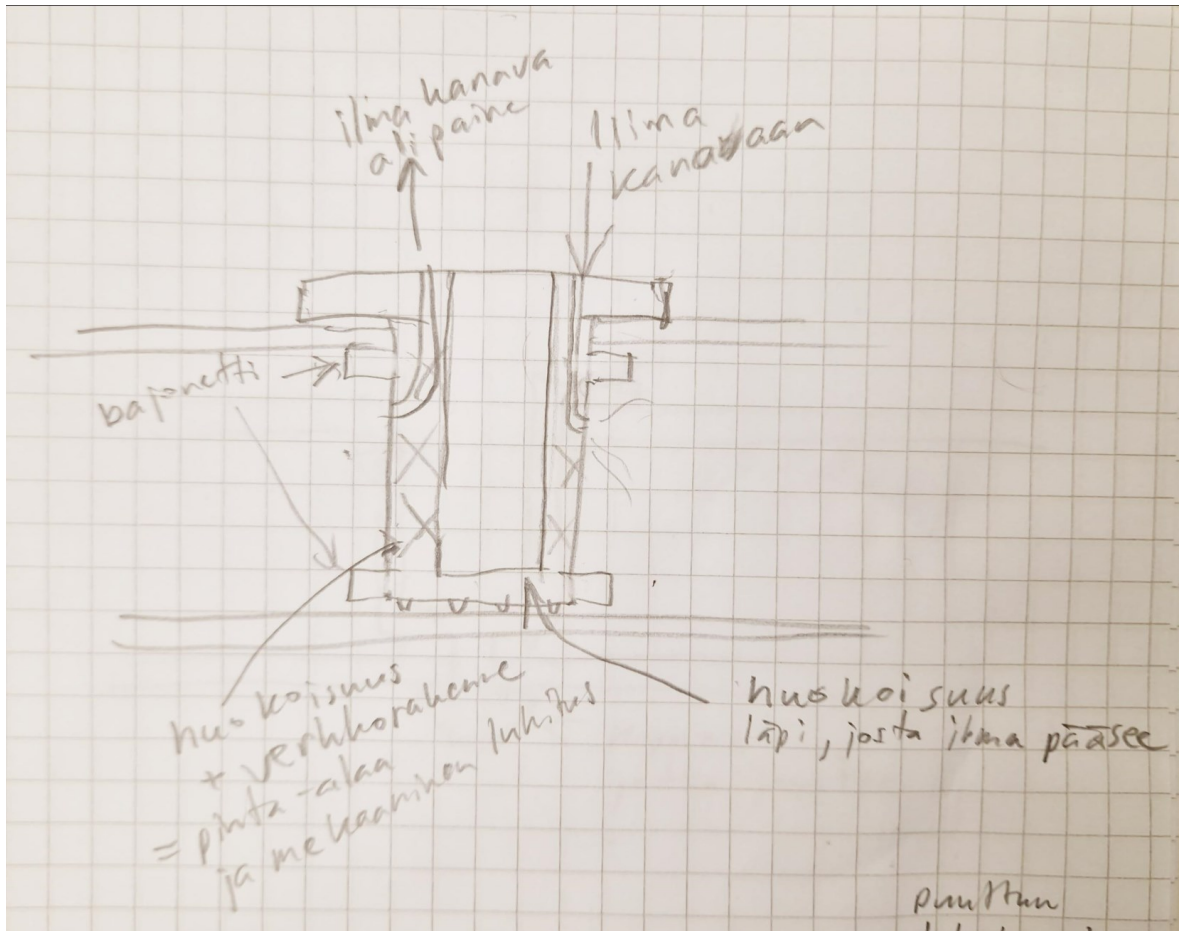 ilma kanava
alipaine
Ilma
kanavaan
bajonetti
huokoisuus
+ verkkorakenne
= pinta-alaa
ja mekaaninen lukitus
huokoisuus
läpi, josta ilma pääsee